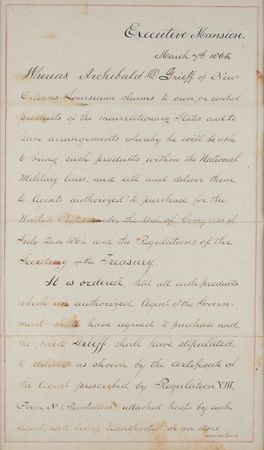 Executive Mansion.
March 7th 1865.
Whereas Archibald D. Grieff of New-
Orleans Louisiana claims to own or control
products of the insurrectionary States and to
have arrangements whereby he will be able
to bring such products within the National
Military lines, and sell and deliver them
to Agents authorized to purchase for the
United States under the Act of Congress of
July 2nd 1864 and the Regulations of the
Secretary of the Treasury.
It is ordered that all such products
which an authorized Agent of the Govern-
ment shall have agreed to purchase and
the said Grieff shall have stipulated
to deliver as shown by the certificate of
the Agent prescribed by Regulation VIII.
Form No 1 attached hereto by such
Agent and being transported or in store